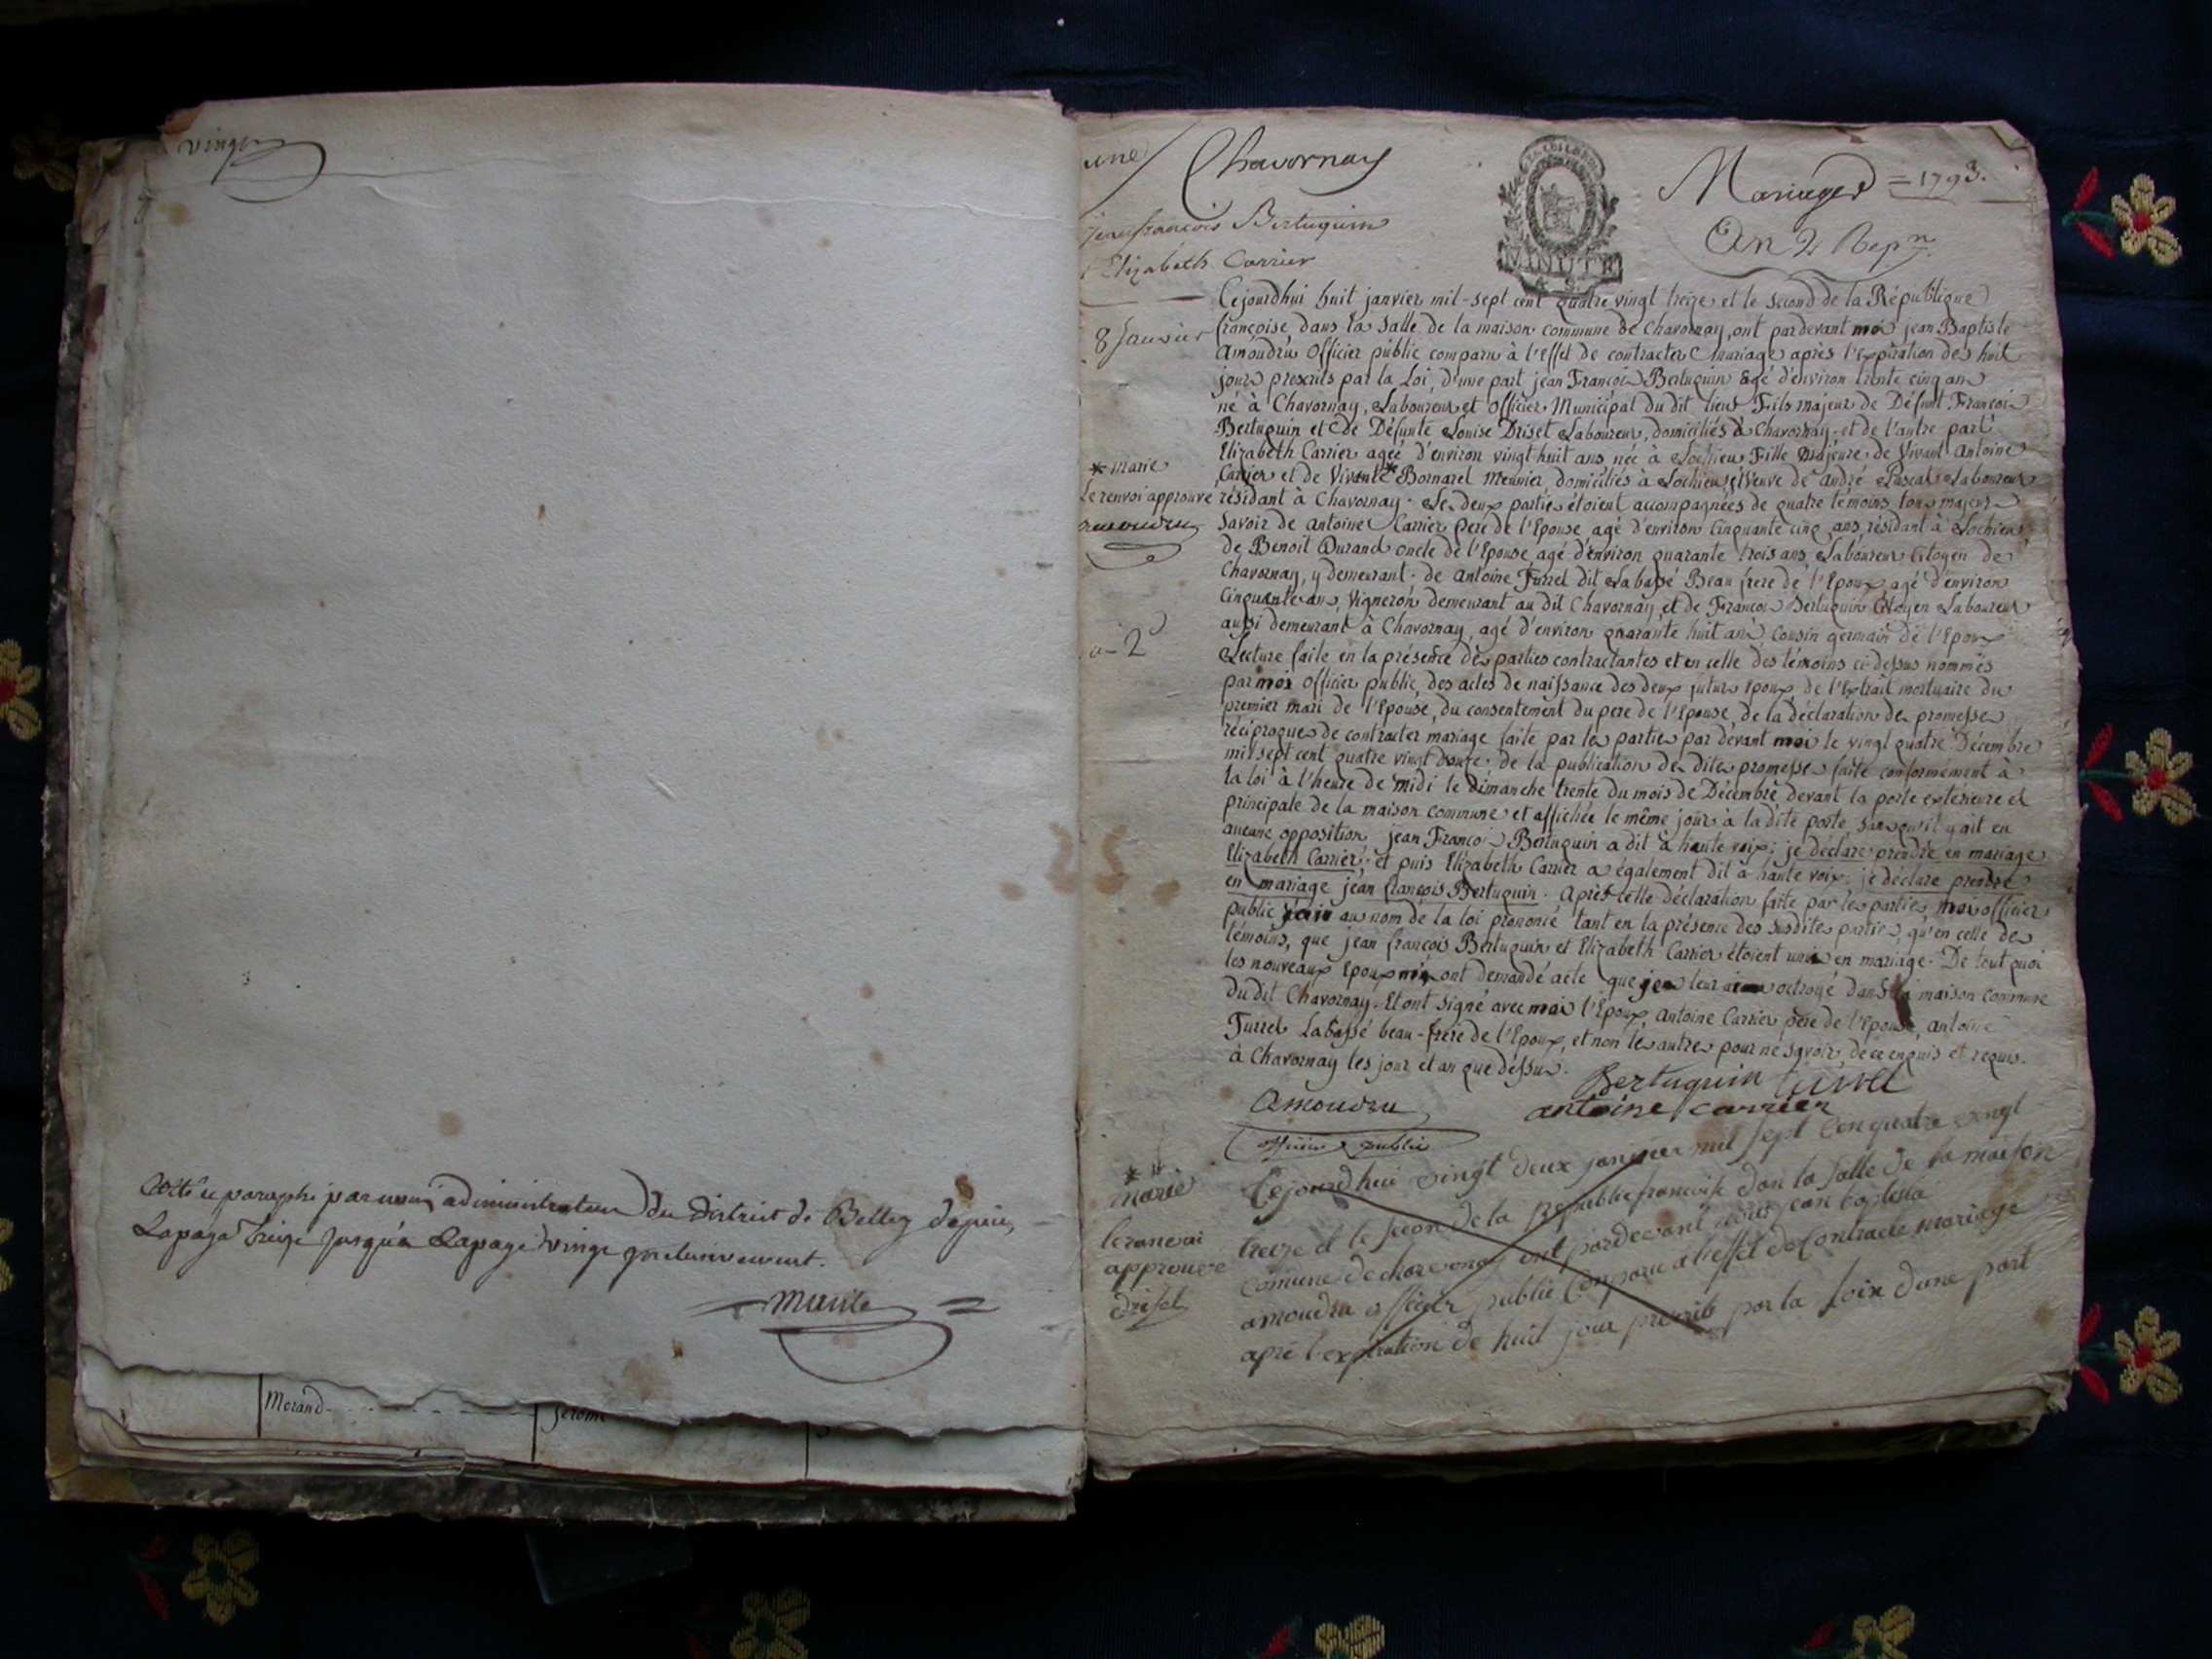 vingt
Cotté et paraphé par nous administrateur du district de Belley depuis
la page treize jusqu'à la page vingt inclusivement.
Morand
Jerome
une
Chavornay
Mariages = 1793.
An 2 Repn.
MINUTE
jean françois Bertuquin
Elizabeth Carrier
8 Janvier
Cejourdhui huit janvier mil-sept cent quatre vingt treize et le second de la République
françoise, dans la salle de la maison commune de Chavornay, ont pardevant moi jean Baptiste
Amoudru Officier public comparu à l'effet de contracter mariage après l'expiration des huit
jours prescrits par la Loi, d'une part jean François Bertuquin agé d'environ trente cinq ans
né à Chavornay, Laboureur et Officier Municipal du dit lieu Fils majeur de Défunt François
Bertuquin et de Défunte Louise Driset Laboureur, domiciliés à Chavornay. et de l'autre part
Elizabeth Carrier agée d'environ vingt huit ans née à Lochieu Fille Majeure de Vivant Antoine
Carrier et de Vivante * Bornarel Meunier domiciliés à Lochieu, et veuve de André Pascal Laboureur
* marie
Le renvoi approuvé
amoudru
résidant à Chavornay. Les deux parties étoient accompagnées de quatre témoins tous majeurs
Savoir de antoine Carrier pere de l'Epouse agé d'environ Cinquante cinq ans, résidant à Lochieu,
de Benoit Durand oncle de l'Epouse agé d'environ quarante trois ans, Laboureur Citoyen de
Chavornay, y demeurant. de Antoine Turrel dit Labassé Beau frere de l'Epoux agé d'environ
Cinquante ans, Vigneron demeurant au dit Chavornay et de François Bertuquin Citoyen Laboureur
aussi demeurant à Chavornay, agé d'environ quarante huit ans cousin germain de l'Epoux
2
Lecture faite en la présence des parties contractantes et en celle des témoins ci-dessus nommés
par moi Officier public, des actes de naissance des deux futurs époux, de l'extrait mortuaire du
premier mari de l'Epouse, du consentement du pere de l'Epouse, de la déclaration de promesses
réciproques de contracter mariage faite par les parties par devant moi le vingt quatre Décembre
mil sept cent quatre vingt douze. de la publication des dites promesses faite conformément à
la loi à l'heure de midi le dimanche trente du mois de Décembre, devant la porte exterieure et
principale de la maison commune et affichée le même jour à la dite porte, sans qu'il y ait eu
aucune opposition. jean François Bertuquin a dit à haute voix: je déclare prendre en mariage
Elizabeth Carrier. et puis Elizabeth Carrier a également dit à haute voix: je déclare prendre
en mariage jean françois Bertuquin. Après cette déclaration faite par les parties, moi officier
public au nom de la loi prononcé tant en la présence des susdites parties, qu'en celle des
témoins, que jean françois Bertuquin et Elizabeth Carrier étoient unis en mariage. De tout quoi
les nouveaux Epoux ont demandé acte que je leur octroyé dans la maison commune
du dit Chavornay. Et ont signé avec moi l'Epoux, Antoine Carrier père de l'Epouse, antoine
Turrel Labassé beau-frere de l'Epoux, et non les autres pour ne savoir, de ce enquis et requis.
à Chavornay les jour et an que dessus.
Bertuquin turrel
Amoudru antoine carrier
Officier public
Cejourdhui vingt deux janvier mil sept cen quatre vingt
treize et le secon de la Republic francoise dan la salle de la maison
comune de chavornay ont pardevant nous jean baptista
amoudru officier public comparu a l'effet de contracte mariage
apre l'expiration de huit jour prescrit par la loix dune part
marie
le ranvoi
approuve
driset